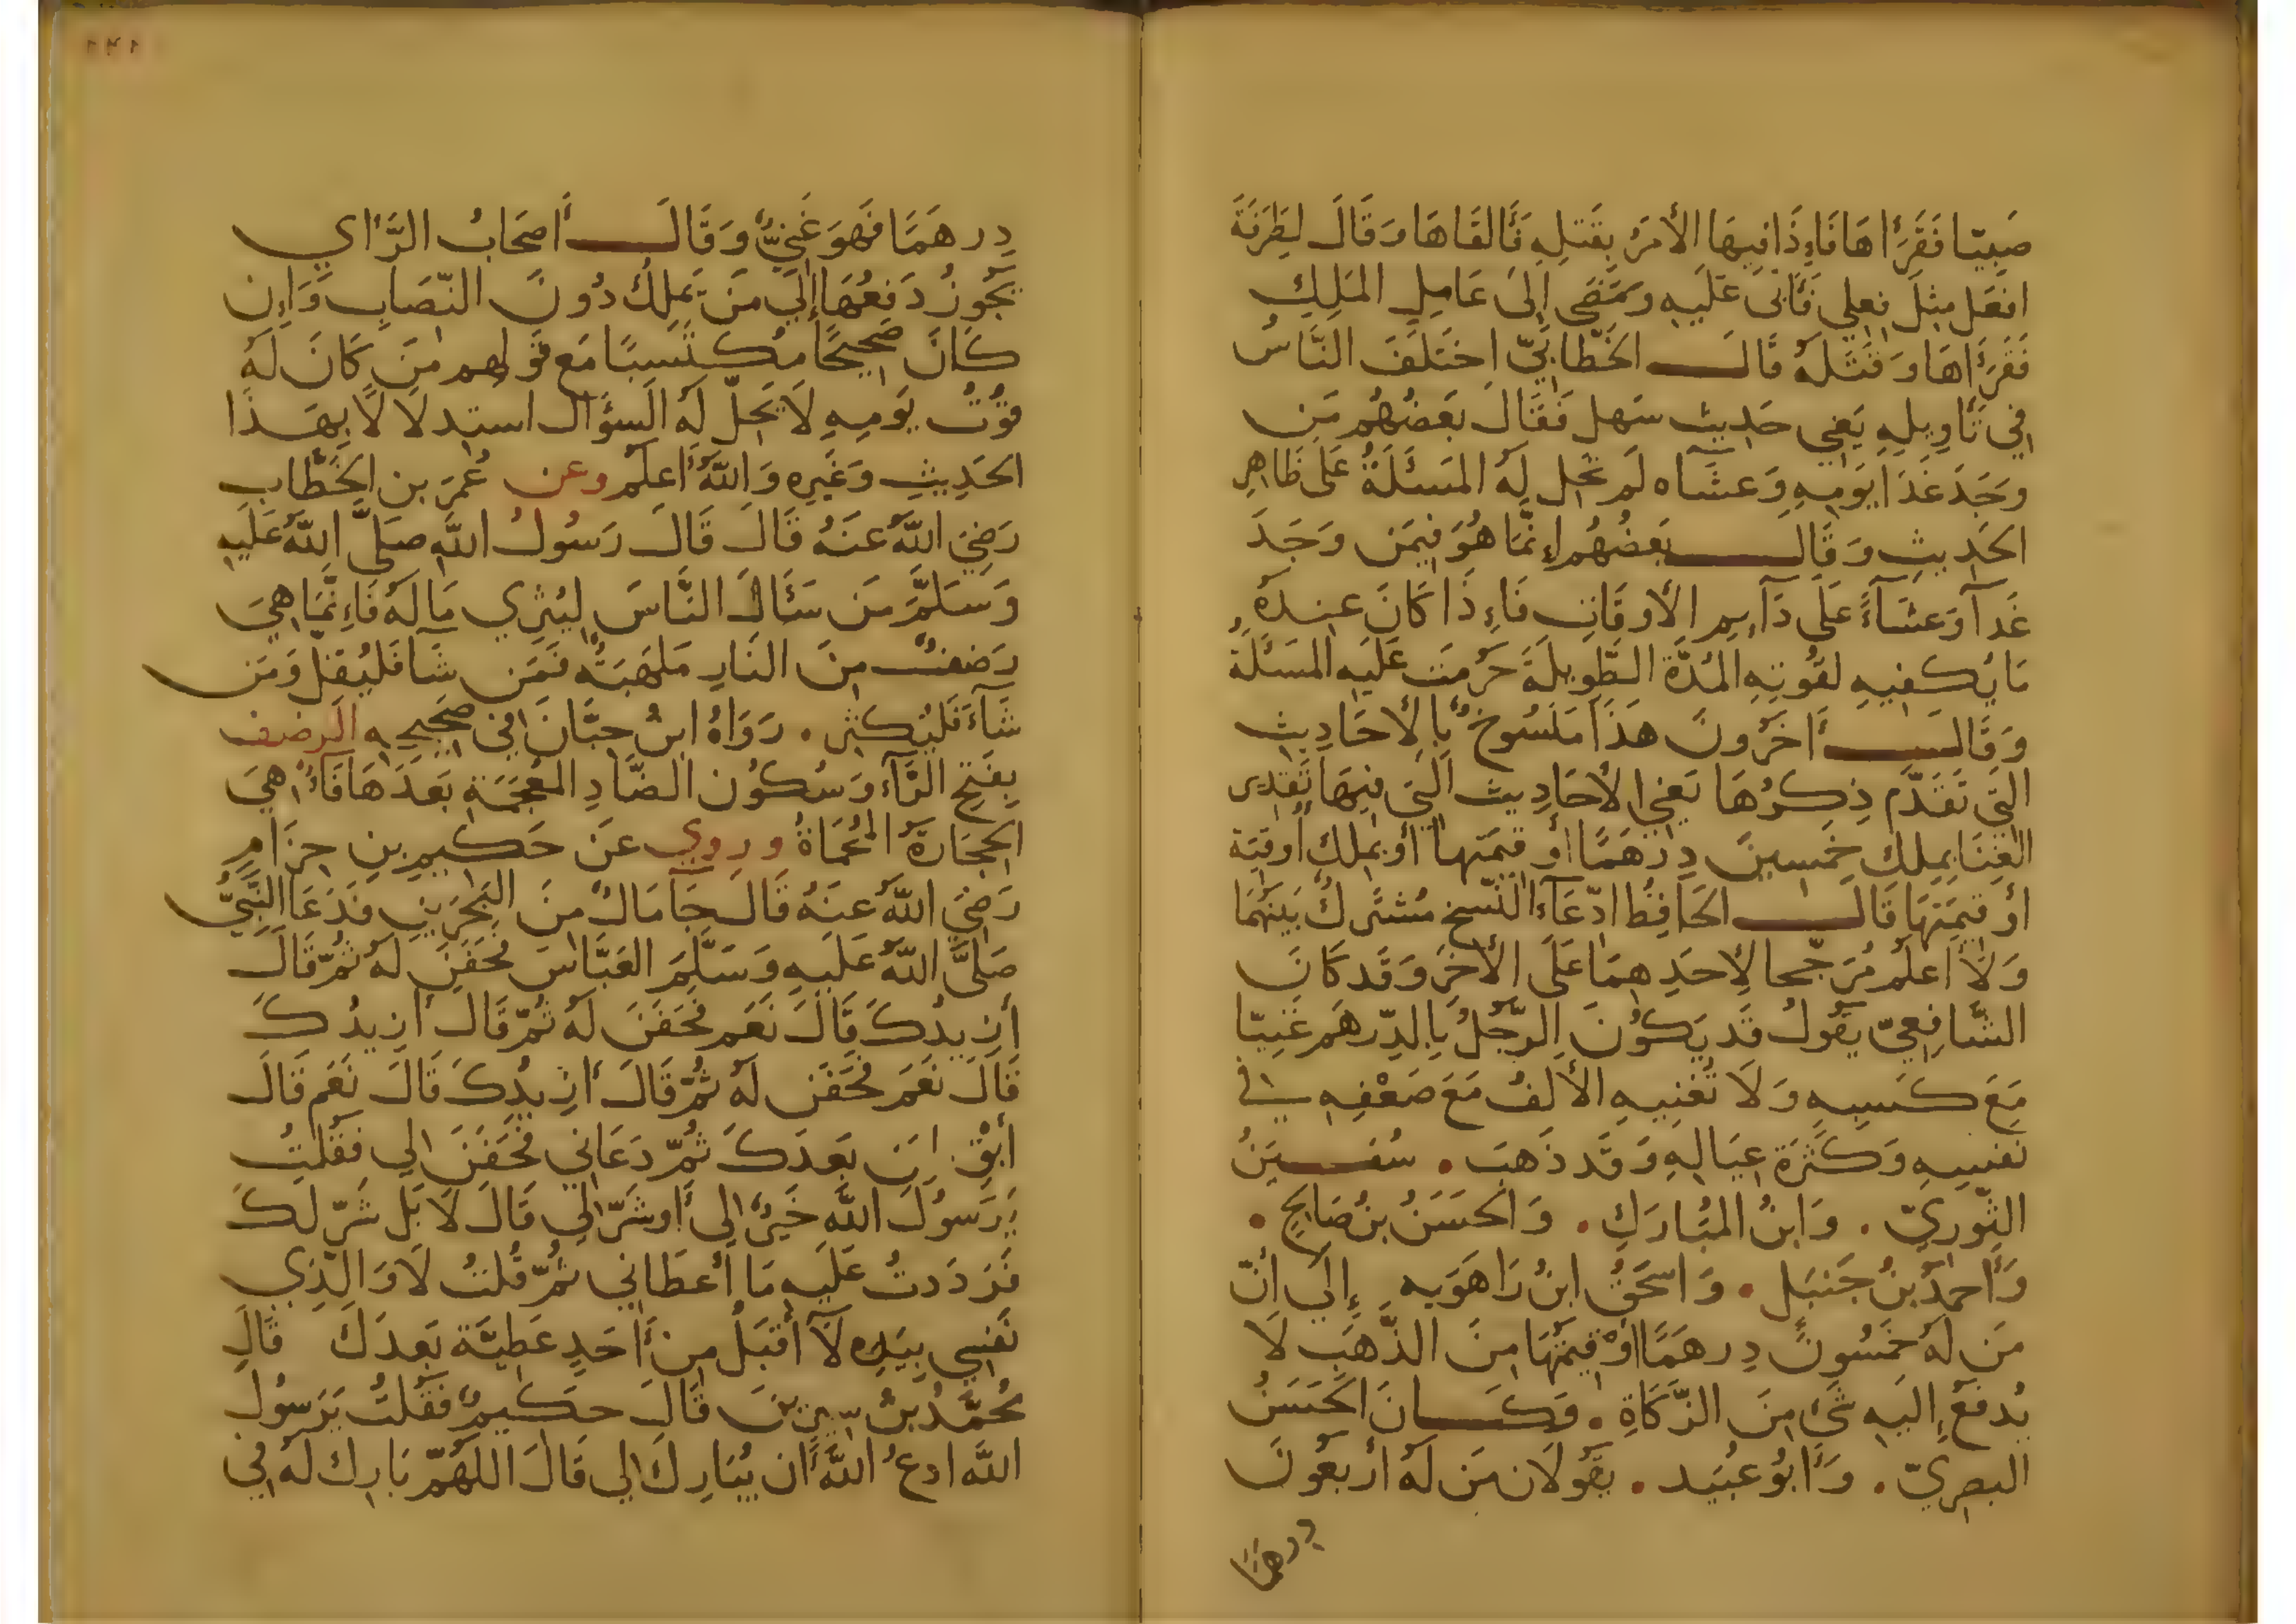 صَبِيّا فَقَرَأَهَا فَإِذَا فِيهَا الأَمرُ بِقَتلِهِ فَأَلقَاهَا وَقَالَ لِطَرَفَةَ
افعَل مِثلَ فِعلِي فَأَبَى عَلَيهِ وَمَضَى إِلَى عَامِلِ المَلِكِ
فَقَرَأَهَا وَقَتَلَهُ قَالَ الخَطَّابَيّ اِختَلَفَ النَّاسُ
فِي تَأوِيلِهِ يَعنِي حَدِيث سَهل فَقَالَ بَعضُهُم مَن
وَجَدَ غَدَا يَومِهِ وَعشَآه لَم تحِل لَهُ المَسئَلَةُ عَلى ظَاهِرِ
الحَدِيثِ وَقَالَ بَعضُهُم إِنَّمَا هُوَ فِيمَن وَجَدَ
غَدآ وَعشَآءً عَلَى دَآيِمِ الأَوقَاتِ فَإِذَا كَانَ عِندَهُ
مَا يَكفِيهِ لقُوتِهِ المُدَّة الطَّوِيلَةَ حَرُمَت عَلَيهِ المَسئَلَةُ
وَقَالَ أَخَرُونَ هَذَا مَنسُوخٌ بِالأَحَادِيثِ
الَّتِي تَقَدَّمَ ذِكرُهَا يَعنِي الأَحَادِيث الَّتِي فِيهَا تَقدِير
الغِنَا بِمِلكِ خَمسِينَ دِرهَمًا أَو قِيمَتِهَا أَو بِملكِ أُوقِيّة
أَو قِيمَتِهَا قَالَ الحَافِظُ ادِّعَآءُ النَّسخِ مُشتَرَكٌ بَينَهُمَا
وَلَا أَعلَمُ مُرَجّحا لِأَحَدِهِمَا عَلَى الأَخَرِ وَقَد كَانَ
الشَّافِعِيّ يَقُولُ قَد يَكُونُ الرَّجُلُ بِالدِّرهَمِ غَنِيّا
مَعَ كَسبِهِ وَلَا تُغنِيهِ الأَلفُ مَعَ ضَعْفِهِ في
نَفسِهِ وَكَثرَة عِيَالِهِ وَقَد ذَهَبَ . سُفيَنُ
الثَّورِيّ . وَابنُ المُبَارَكِ . وَالحَسَنُ بنُ صَالحٍ .
وَأَحمَدُ بنُ حَنبَل . وَاسحَقُ ابنُ رَاهَوَيه إِلَى أَنَّ
مَن لَهُ خَمسُونَ دِرهَمًا أَوْ قِيمَتُهَا مِنَ الذَّهَبِ لَا
يُدفَعُ إِلَيهِ شَيءٌ مِنَ الزَّكَاةِ . وَكَانَ الحَسَنُ
البصرِيّ . وَأَبُو عُبَيد . يَقُولَان مَن لَهُ أَربَعُونَ
درهمًا
١٤١
دِرهَمًا فَهوَ غَنِيٌّ وَقَالَ أَصحَابُ الرَّأي
يَجُوزُ دَفعُهَا إِلَى مَن يَملِكُ دُونَ النّصَابِ وَإِن
كَانَ صَحِيحًا مُكتَسِبًا مَع قَولهم مَن كَانَ لَهُ
قُوتُ يَومِهِ لَا يَحِلّ لَهُ السؤَال استِدلَالًا بِهَذَا
الحَدِيثِ وَغَيرِه وَاللَّهُ أَعلَم وعن عُمَرَ بن الخَطَّابِ
رَضِيَ اللَّهُ عَنهُ قَالَ قَالَ رَسُولُ اللَّهِ صَلَّى اللَّهُ عَلَيهِ
وَسَلَّمَ مَن سَأَلَ النَّاسَ لِيُثرِي مَالَهُ فَإِنَّمَا هِيَ
رَضفٌ مِنَ النَارِ مَلهَبَةٌ فَمَن شَآ فَليُقِلّ وَمَن
شَآءَ فَليُكثِر . رَوَاهُ ابنُ حبَّانَ فِي صَحِيحِهِ الرضف
بِفَتحِ الرَّآءِ وَسُكُون الضَّادِ المُعجَمَةِ بَعدَهَا فَآءٌ هِيَ
الحِجَارَةُ المُحمَاةُ ورُوي عَن حَكِيمِ بنِ حِزَامٍ
رَضِيَ اللَّهُ عَنهُ قَالَ جَآ مَالٌ مِنَ البَحرَينِ فَدَعَا النَّبِيُّ
صَلَّى اللَّهُ عَلَيهِ وَسَلَّمَ العَبَّاسَ فَحَفَنَ لَهُ ثُمَّ قَالَ
أَزِيدُكَ قَالَ نَعَم فَحَفَنَ لَهُ ثُمَّ قَالَ أَزِيدُكَ
قَالَ نَعَم فَحَفَن لَهُ ثُمَّ قَالَ أَزِيدُكَ قَالَ نَعَم قَالَ
أَبْقِ لِمَن بَعدَكَ ثُمَّ دَعَانِي فَحَفَنَ لِي فَقُلتُ
يَرَسُولَ اللَّهِ خَيرٌ لِي أَو شَرّ لِي قَالَ لَا بَل شَرّ لَكَ
فَرَدَدتُ عَلَيهِ مَا أَعطَانِي ثُمَّ قُلتُ لَا وَالَّذِي
نَفسِي بِيَدِهِ لَآ أَقبَلُ مِن أَحَدٍ عَطِيَّة بَعدَكَ قَالَ
مُحَمَّدُ بنُ سِيرِينَ قَالَ حَكِيمٌ فَقُلتُ يَرَسُولَ
اللَّهِ ادعُ اللَّهَ أَن يُبَارِكَ لِي قَالَ اللَّهُمَّ بَارِك لَهُ فِي